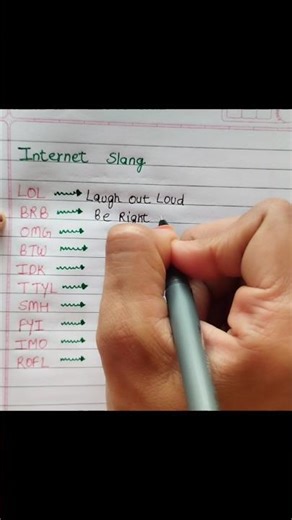 Internet Slang
LOL Laugh out Loud
BRB Be Right
OMG
BTW
IDK
TTYL
SMH
FYI
IMO
ROFL